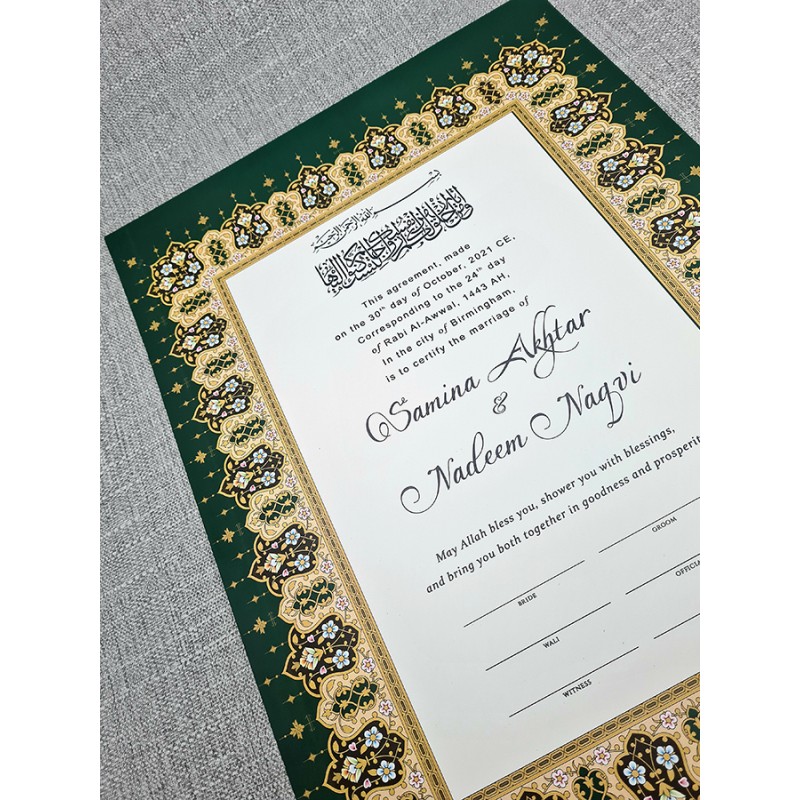 بسم الله الرحمن الرحيم
This agreement, made
on the 30th day of October, 2021 CE,
Corresponding to the 24th day
of Rabi Al-Awwal, 1443 AH,
In the city of Birmingham,
is to certify the marriage of
Samina Akhtar
&
Nadeem Naqvi
May Allah bless you, shower you with blessings,
and bring you both together in goodness and
BRIDE
GROOM
WALI
WITNESS